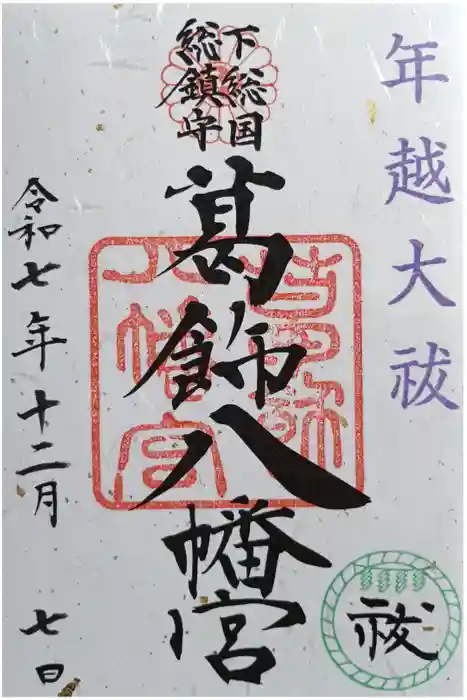 年越大祓
下総国
総鎮守
葛飾八幡宮
葛飾
八幡宮
令和七年十二月 七日
祓